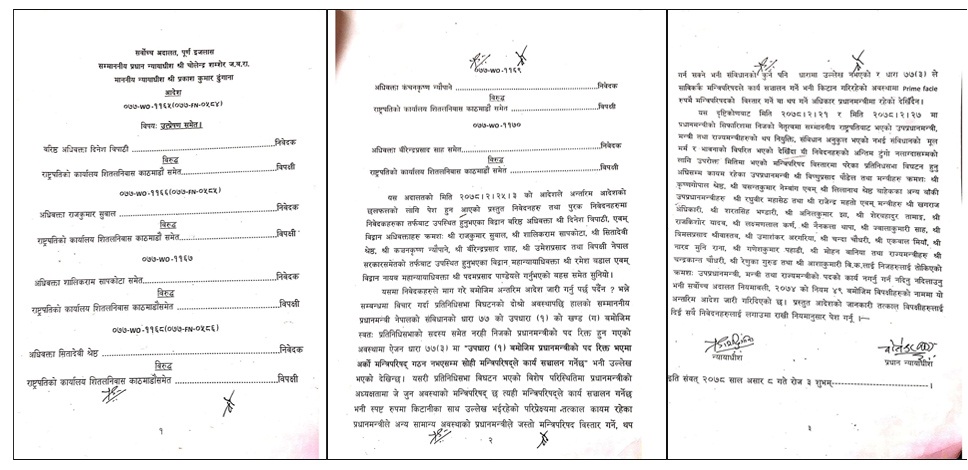 सर्वोच्च अदालत, पूर्ण इजलास
सम्माननीय प्रधान न्यायाधीश श्री चोलेन्द्र शम्शेर ज.ब.रा.
माननीय न्यायाधीश श्री प्रकाश कुमार ढुंगाना
आदेश
०७७-WO-११६५(०७७-FN-०५८४)
विषयः उत्प्रेषण समेत।
वरिष्ठ अधिवक्ता दिनेश त्रिपाठी ....निवेदक
विरुद्ध
राष्ट्रपतिको कार्यालय शितलनिवास काठमाडौंसमेत....विपक्षी
०७७-WO-११६६(०७७-FN-०५८५)
अधिवक्ता राजकुमार सुवाल ....निवेदक
विरुद्ध
राष्ट्रपतिको कार्यालय शितलनिवास काठमाडौं समेत....विपक्षी
०७७-WO-११६७
अधिवक्ता शालिकराम सापकोटा समेत....निवेदक
विरुद्ध
राष्ट्रपतिको कार्यालय शितलनिवास काठमाडौंसमेत....विपक्षी
०७७-WO-११६८(०७७-FN-०५८६)
अधिवक्ता सितादेवी श्रेष्ठ ....निवेदक
विरुद्ध
राष्ट्रपतिको कार्यालय शितलनिवास काठमाडौंसमेत....विपक्षी
१
०७७-WO-११६९
अधिवक्ता कंचनकृष्ण न्यौपाने ....निवेदक
विरुद्ध
राष्ट्रपतिको कार्यालय शितलनिवास काठमाडौं समेत....विपक्षी
०७७-WO-११७०
अधिवक्ता बीरेन्द्रप्रसाद साह समेत....निवेदक
विरुद्ध
राष्ट्रपतिको कार्यालय शितलनिवास काठमाडौं समेत....विपक्षी
यस अदालतको मिति २०७८।२।२५।३ को आदेशले अन्तरिम आदेशको
छलफलको लागि पेश हुन आएको प्रस्तुत निवेदनहरु तथा पुरक निवेदनहरुमा
निवेदकहरुका तर्फबाट उपस्थित हुनुभएका विद्वान वरिष्ठ अधिवक्ता श्री दिनेश त्रिपाठी, एवम्
विद्वान अधिवक्ताहरु क्रमशः श्री राजकुमार सुवाल, श्री शालिकराम सापकोटा, श्री सितादेवी
श्रेष्ठ, श्री कञ्चनकृष्ण न्यौपाने, श्री बीरेन्द्रप्रसाद शाह, श्री उमेशप्रसाद तथा विपक्षी नेपाल
सरकारसमेतको तर्फबाट उपस्थित हुनुभएका विद्वान महान्यायाधिवक्ता श्री रमेश बडाल एवम्
विद्वान नायब महान्यायाधिवक्ता श्री पदमप्रसाद पाण्डेयले गर्नुभएको बहस समेत सुनियो।
यसमा निवेदकहरुले माग गरे बमोजिम अन्तरिम आदेश जारी गर्नु पर्छ पर्दैन ? भन्ने
सम्बन्धमा विचार गर्दा प्रतिनिधिसभा विघटनको दोश्रो अवस्थापछि हालको सम्माननीय
प्रधानमन्त्री नेपालको संविधानको धारा ७७ को उपधारा (१) को खण्ड (ग) बमोजिम
स्वतः प्रतिनिधिसभाको सदस्य समेत नरही निजको प्रधानमन्त्रीको पद रिक्त हुन गएको
अवस्थामा ऐजन धारा ७७(३) मा "उपधारा (१) बमोजिम प्रधानमन्त्रीको पद रिक्त भएमा
अर्को मन्त्रिपरिषद् गठन नभएसम्म सोही मन्त्रिपरिषद्ले कार्य सञ्चालन गर्नेछ" भनी उल्लेख
भएको देखिन्छ। यसरी प्रतिनिधिसभा विघटन भएको विशेष परिस्थितिमा प्रधानमन्त्रीको
अध्यक्षतामा जे जुन अवस्थाको मन्त्रिपरिषद् छ त्यही मन्त्रिपरिषद्ले कार्य सञ्चालन गर्नेछ
भनी स्पष्ट रुपमा किटानीका साथ उल्लेख भईरहेको परिप्रेक्ष्यमा तत्काल कायम रहेका
प्रधानमन्त्रीले अन्य सामान्य अवस्थाको प्रधानमन्त्रीले जस्तो मन्त्रिपरिषद विस्तार गर्ने, थप
२
गर्न सक्ने भनी संविधानको कुनै पनि धारामा उल्लेख नभएको र धारा ७७(३) ले
साविककै मन्त्रिपरिषद्ले कार्य सञ्चालन गर्ने भनी किटान गरिरहेको अवस्थामा Prime facie
रुपमै मन्त्रिपरिषदको विस्तार गर्ने वा थप गर्ने अधिकार प्रधानमन्त्रीमा रहेको देखिँदैन।
यस दृष्टिकोणबाट मिति २०७८।२।२१ र मिति २०७८।२।२७ मा
प्रधानमन्त्रीको सिफारिशमा निजको नेतृत्वमा सम्माननीय राष्ट्रपतिबाट भएको उपप्रधानमन्त्री,
मन्त्री तथा राज्यमन्त्रीहरुको थप नियुक्ति, संविधान अनुकुल भएको नभई संविधानको मूल
मर्म र भावनाको विपरित भएको देखिँदा यी निवेदनहरुको अन्तिम टुंगो नलाग्दासम्मको
लागि उपरोक्त मितिमा भएको मन्त्रिपरिषद विस्तारमा परेका प्रतिनिधिसभा विघटन हुनु
अघिसम्म कायम रहेका उपप्रधानमन्त्री श्री विष्णुप्रसाद पौडेल तथा मन्त्रीहरु क्रमशः श्री
कृष्णगोपाल श्रेष्ठ, श्री बसन्तकुमार नेम्वांग एवम् श्री लिलानाथ श्रेष्ठ चाहेकका अन्य बाँकी
उपप्रधानमन्त्रीहरु श्री रघुबीर महासेठ तथा श्री राजेन्द्र महतो एवम् मन्त्रीहरु श्री खगराज
अधिकारी, श्री शरतसिंह भण्डारी, श्री अनिलकुमार झा, श्री शेरबहादुर तामाङ, श्री
राजकिशोर यादव, श्री लक्ष्मणलाल कर्ण, श्री नैनकला थापा, श्री ज्वालाकुमारी साह, श्री
विमलप्रसाद श्रीवास्तव, श्री उमाशंकर अरगरिया, श्री चन्दा चौधरी, श्री एकबाल मियाँ, श्री
नारद मुनि राना, श्री गणेशकुमार पहाडी, श्री मोहन बानियाँ तथा राज्यमन्त्रीहरु श्री
चन्द्रकान्त चौधरी, श्री रेणुका गुरुङ तथा श्री आशाकुमारी बि.क.लाई निजहरुलाई तोकिएको
क्रमशः उपप्रधानमन्त्री, मन्त्री तथा राज्यमन्त्रीको पदको कार्य नगर्नु गर्न नदिनु नदिलाउनु
भनी सर्वोच्च अदालत नियमावली, २०७४ को नियम ४९ बमोजिम विपक्षीहरुको नाममा यो
अन्तरिम आदेश जारी गरिदिएको छ। प्रस्तुत आदेशको जानकारी तत्काल विपक्षीहरुलाई
दिई सबै निवेदनहरुलाई लगाउमा राखी नियमानुसार पेश गर्नू।
न्यायाधीश
प्रधान न्यायाधीश
इति संवत् २०७८ साल असार ८ गते रोज ३ शुभम्------------।
३